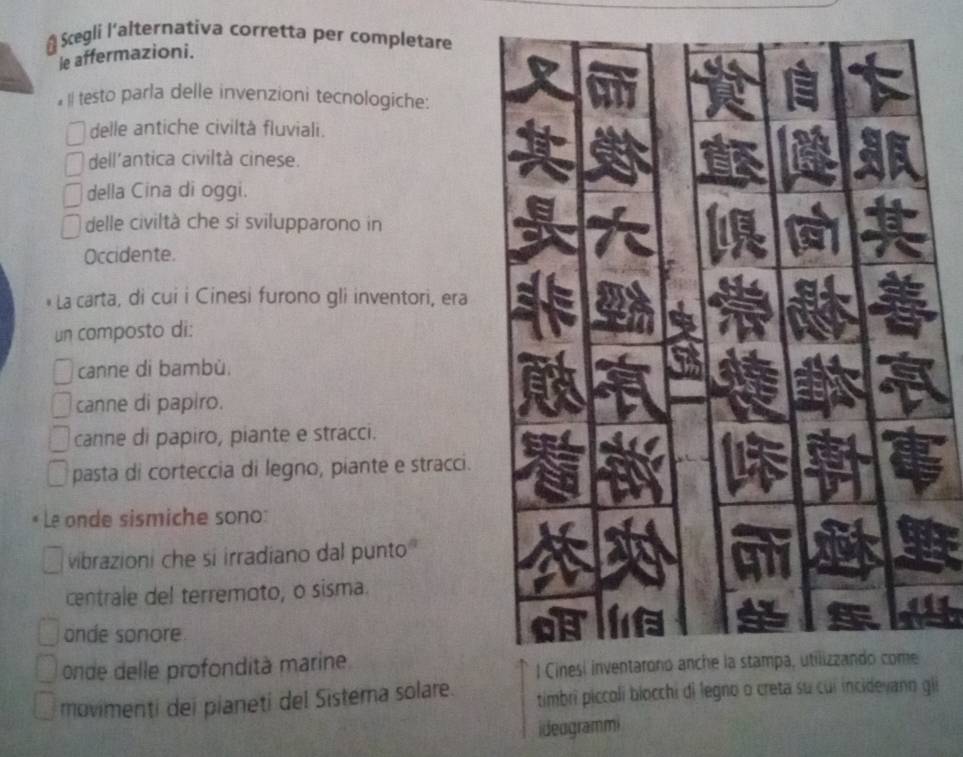 Scegli l'alternativa corretta per completare
le affermazioni.
• Il testo parla delle invenzioni tecnologiche:
delle antiche civiltà fluviali.
dell'antica civiltà cinese.
della Cina di oggi.
delle civiltà che si svilupparono in
Occidente.
• La carta, di cui i Cinesi furono gli inventori, era
un composto di:
canne di bambù.
canne di papiro.
canne di papiro, piante e stracci.
pasta di corteccia di legno, piante e stracci.
• Le onde sismiche sono:
vibrazioni che si irradiano dal punto
centrale del terremoto, o sisma.
onde sonore.
onde delle profondità marine.
movimenti dei pianeti del Sistema solare.
才服其善序事理
自劉向揚雄博極
貨殖則崇勢利而
史記一
而後六經序游俠則
又其是非頗謬於
↑ I Cinesi inventarono anche la stampa, utilizzando come
timbri piccoli blocchi di legno o creta su cui incidevano gli
ideogrammi.